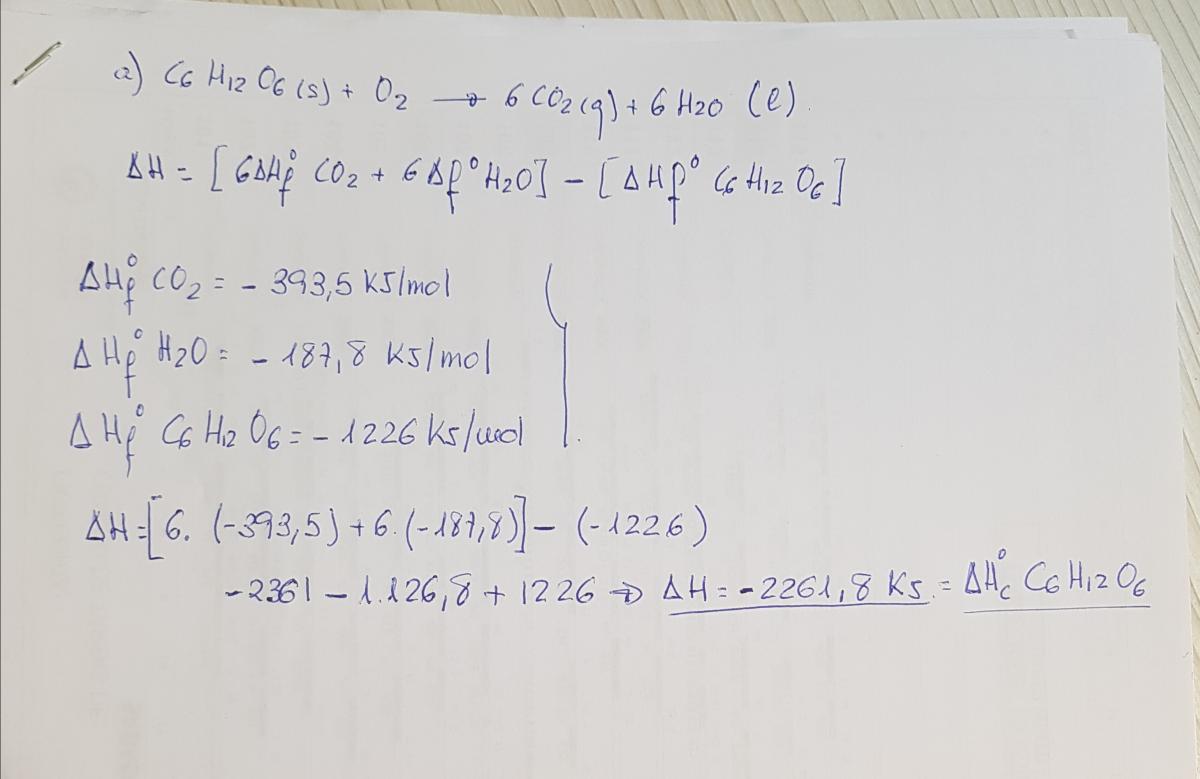 a) C6 H12 O6 (s) + O2 → 6 CO2 (g) + 6 H2O (l).
ΔH = [6ΔHf° CO2 + 6 Δf° H2O] - [ΔHf° C6 H12 O6]
ΔHf° CO2 = - 393,5 KJ/mol
ΔHf° H2O = - 187,8 KJ/mol
ΔHf° C6 H12 O6 = - 1226 KJ/mol
ΔH = [6. (-393,5) + 6. (-187,8)] - (-1226)
-2361 - 1.126,8 + 1226 ⇒ ΔH = -2261,8 KJ. = ΔHc° C6H12O6